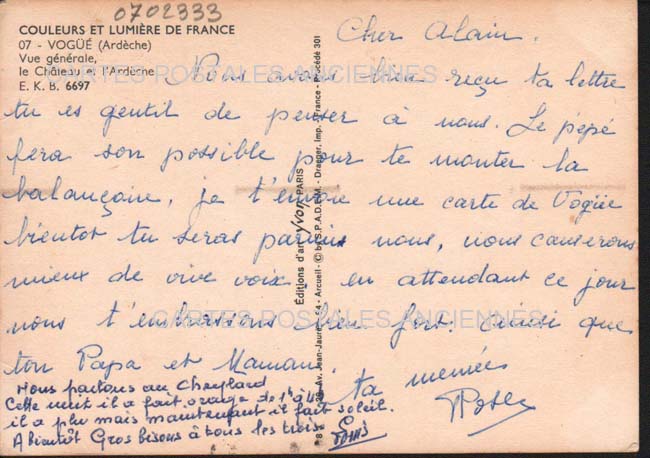 0702333
COULEURS ET LUMIÈRE DE FRANCE
07 - VOGÜÉ (Ardèche)
Vue générale,
le Château et l'Ardèche
E. K. B. 6697
Cher Alain.
Nous avons bien reçu ta lettre
tu es gentil de penser à nous. Le pépé
fera son possible pour te monter la
balançoire, je t'envoie une carte de Vogüe
bientot tu seras parmis nous, nous causerons
mieux de vive voix. en attendant ce jour
nous t'embrassons bien fort. ainsi que
ton Papa et Maman.
ta memée
Nous partons au Cheylard
Cette nuit il a fait orage de 1h à 4h
il a plu mais maintenant il fait soleil.
A Bientôt Gros bisons à tous les trois
Éditions d'art yvon PARIS
Av. Jean-Jaurès - Arcueil - © by S.P.A.D.E.M. - Draeger, Imp. France - Procédé 301
CARTES POSTALES ANCIENNES
CARTES POSTALES ANCIENNES